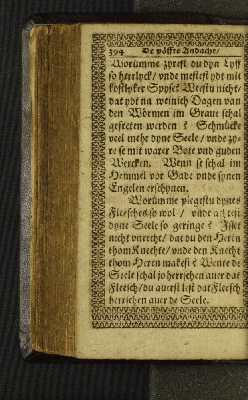 394 De vöffte Andacht/
Worümme zyrest du dyn Lyff
so heerlyck/ vnde mestest ydt mit
kostlyker Spyse? Weestu nicht/
dat ydt na weinich Dagen van
den Wörmen im Graue schal
gefreten werden? Schmücke
veel mehr dyne Seele/ vnde zy-
re se mit warer Bote vnd guden
Wercken. Wenn se schal im
Hemmel vor Gade vnde synen
Engelen erschynen.
Worümme plegestu dynes
Fleesches so wol/ vnde achtest
dyne Seele so geringe? Isset
nicht vnrecht/ dat du den Heren
thom Knechte/ vnde den Knecht
thom Heren makest? Wente de
Seele schal jo herrschen auer dat
Fleesch/ du auerst lest dat Fleesch
herrschen auer de Seele.